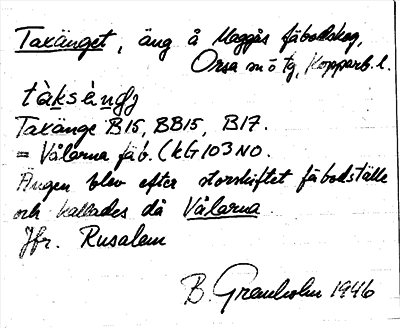 Taxänget, äng å Maggås fäbodskog,
Orsa sn o tg, Kopparb. l.
tàksèŋ
Taxänge B15, BB15, B17.
= Vålarna fäb. (kG103NO.
Ängen blev efter storskiftet fäbodställe
och kallades då Vålarna
Jfr. Rusalem
B. Granholm 1946